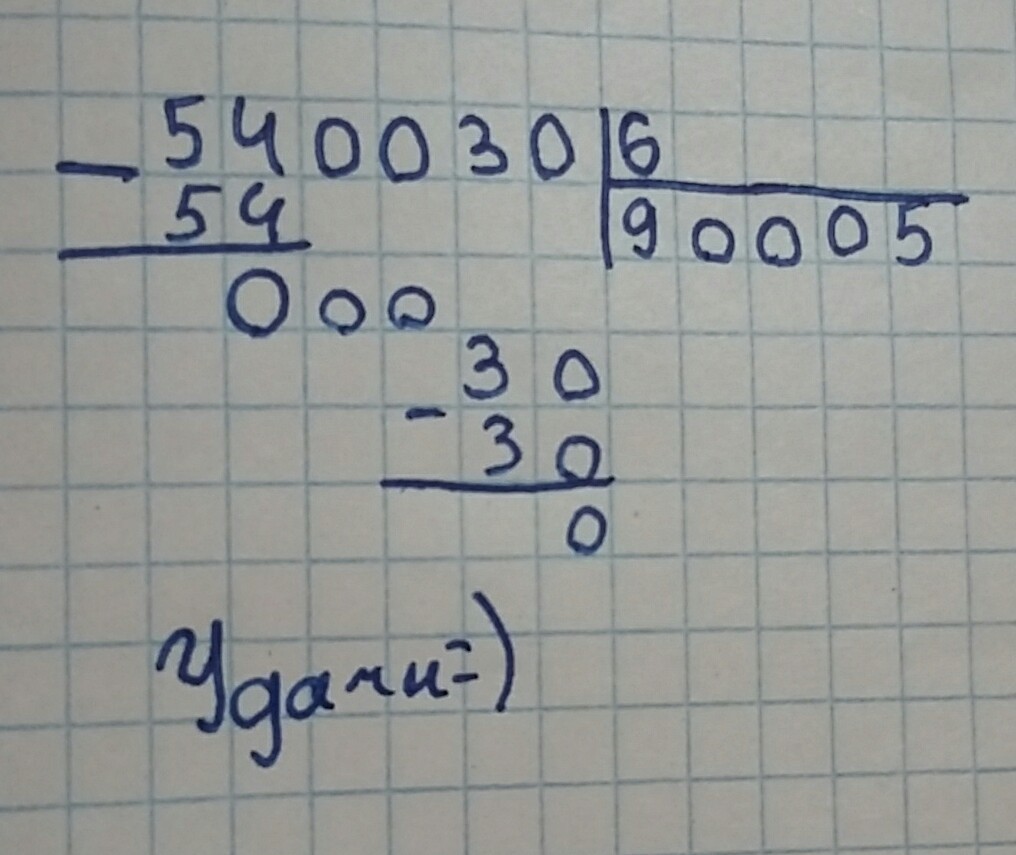 - 540030 | 6
54 | 90005
000
30
- 30
0
Удачи=)